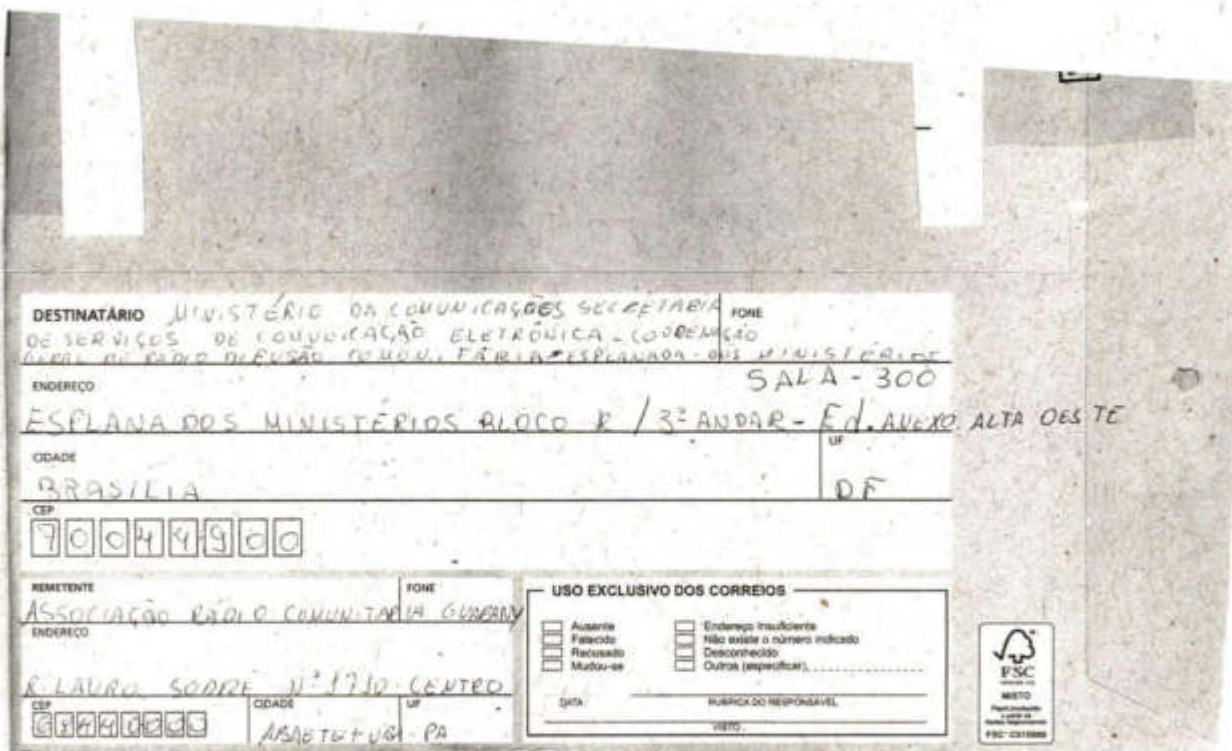 DESTINATÁRIO MINISTÉRIO DA COMUNICAÇÕES SECRETARIA FONE
DE SERVIÇOS DE COMUNICAÇÃO ELETRÔNICA - COORDENAÇÃO
GERAL DE RADIO DIFUSÃO COMUNITÁRIA ESPLANADA DOS MINISTÉRIOS
ENDEREÇO SALA - 300
ESPLANA DOS MINISTÉRIOS BLOCO R / 3º ANDAR - Ed. ANEXO ALTA OESTE
CIDADE UF
BRASÍLIA DF
CEP
70044900
REMETENTE FONE
ASSOCIAÇÃO RÁDIO COMUNITARIA GUARANY
ENDEREÇO
R. LAURO SODRÉ Nº 1710 - CENTRO
CEP CIDADE UF
68440000 ABAETETUBA - PA
USO EXCLUSIVO DOS CORREIOS
Ausente Endereço Insuficiente
Falecido Não existe o número indicado
Recusado Desconhecido
Mudou-se Outros (especificar)
DATA RUBRICA DO RESPONSÁVEL
VISTO
FSC
MISTO